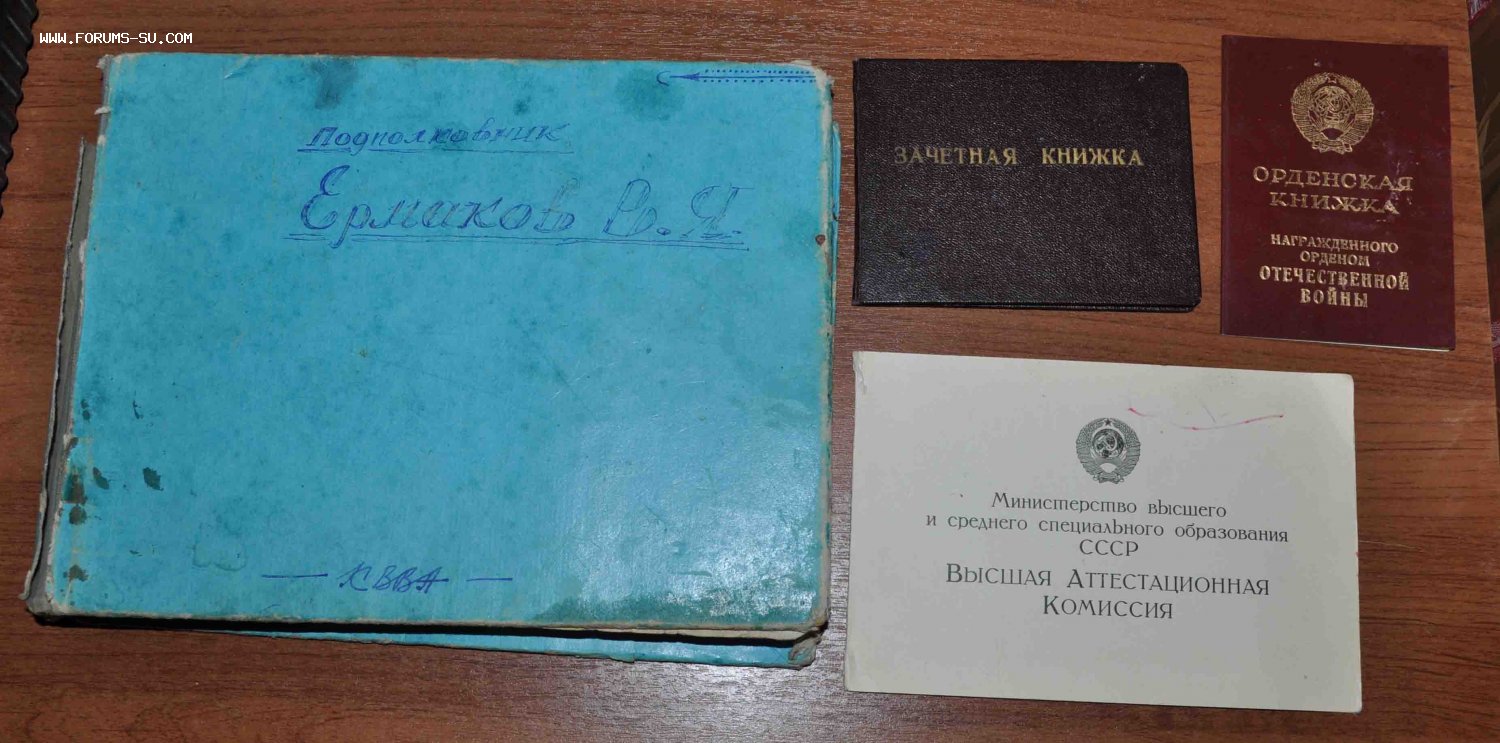 WWW.FORUMS-SU.COM
Подполковник
Ермаков В.Я.
— КВВА —
ЗАЧЕТНАЯ КНИЖКА
ОРДЕНСКАЯ
КНИЖКА
НАГРАЖДЕННОГО
ОРДЕНОМ
ОТЕЧЕСТВЕННОЙ
ВОЙНЫ
Министерство высшего
и среднего специального образования
СССР
Высшая Аттестационная
Комиссия